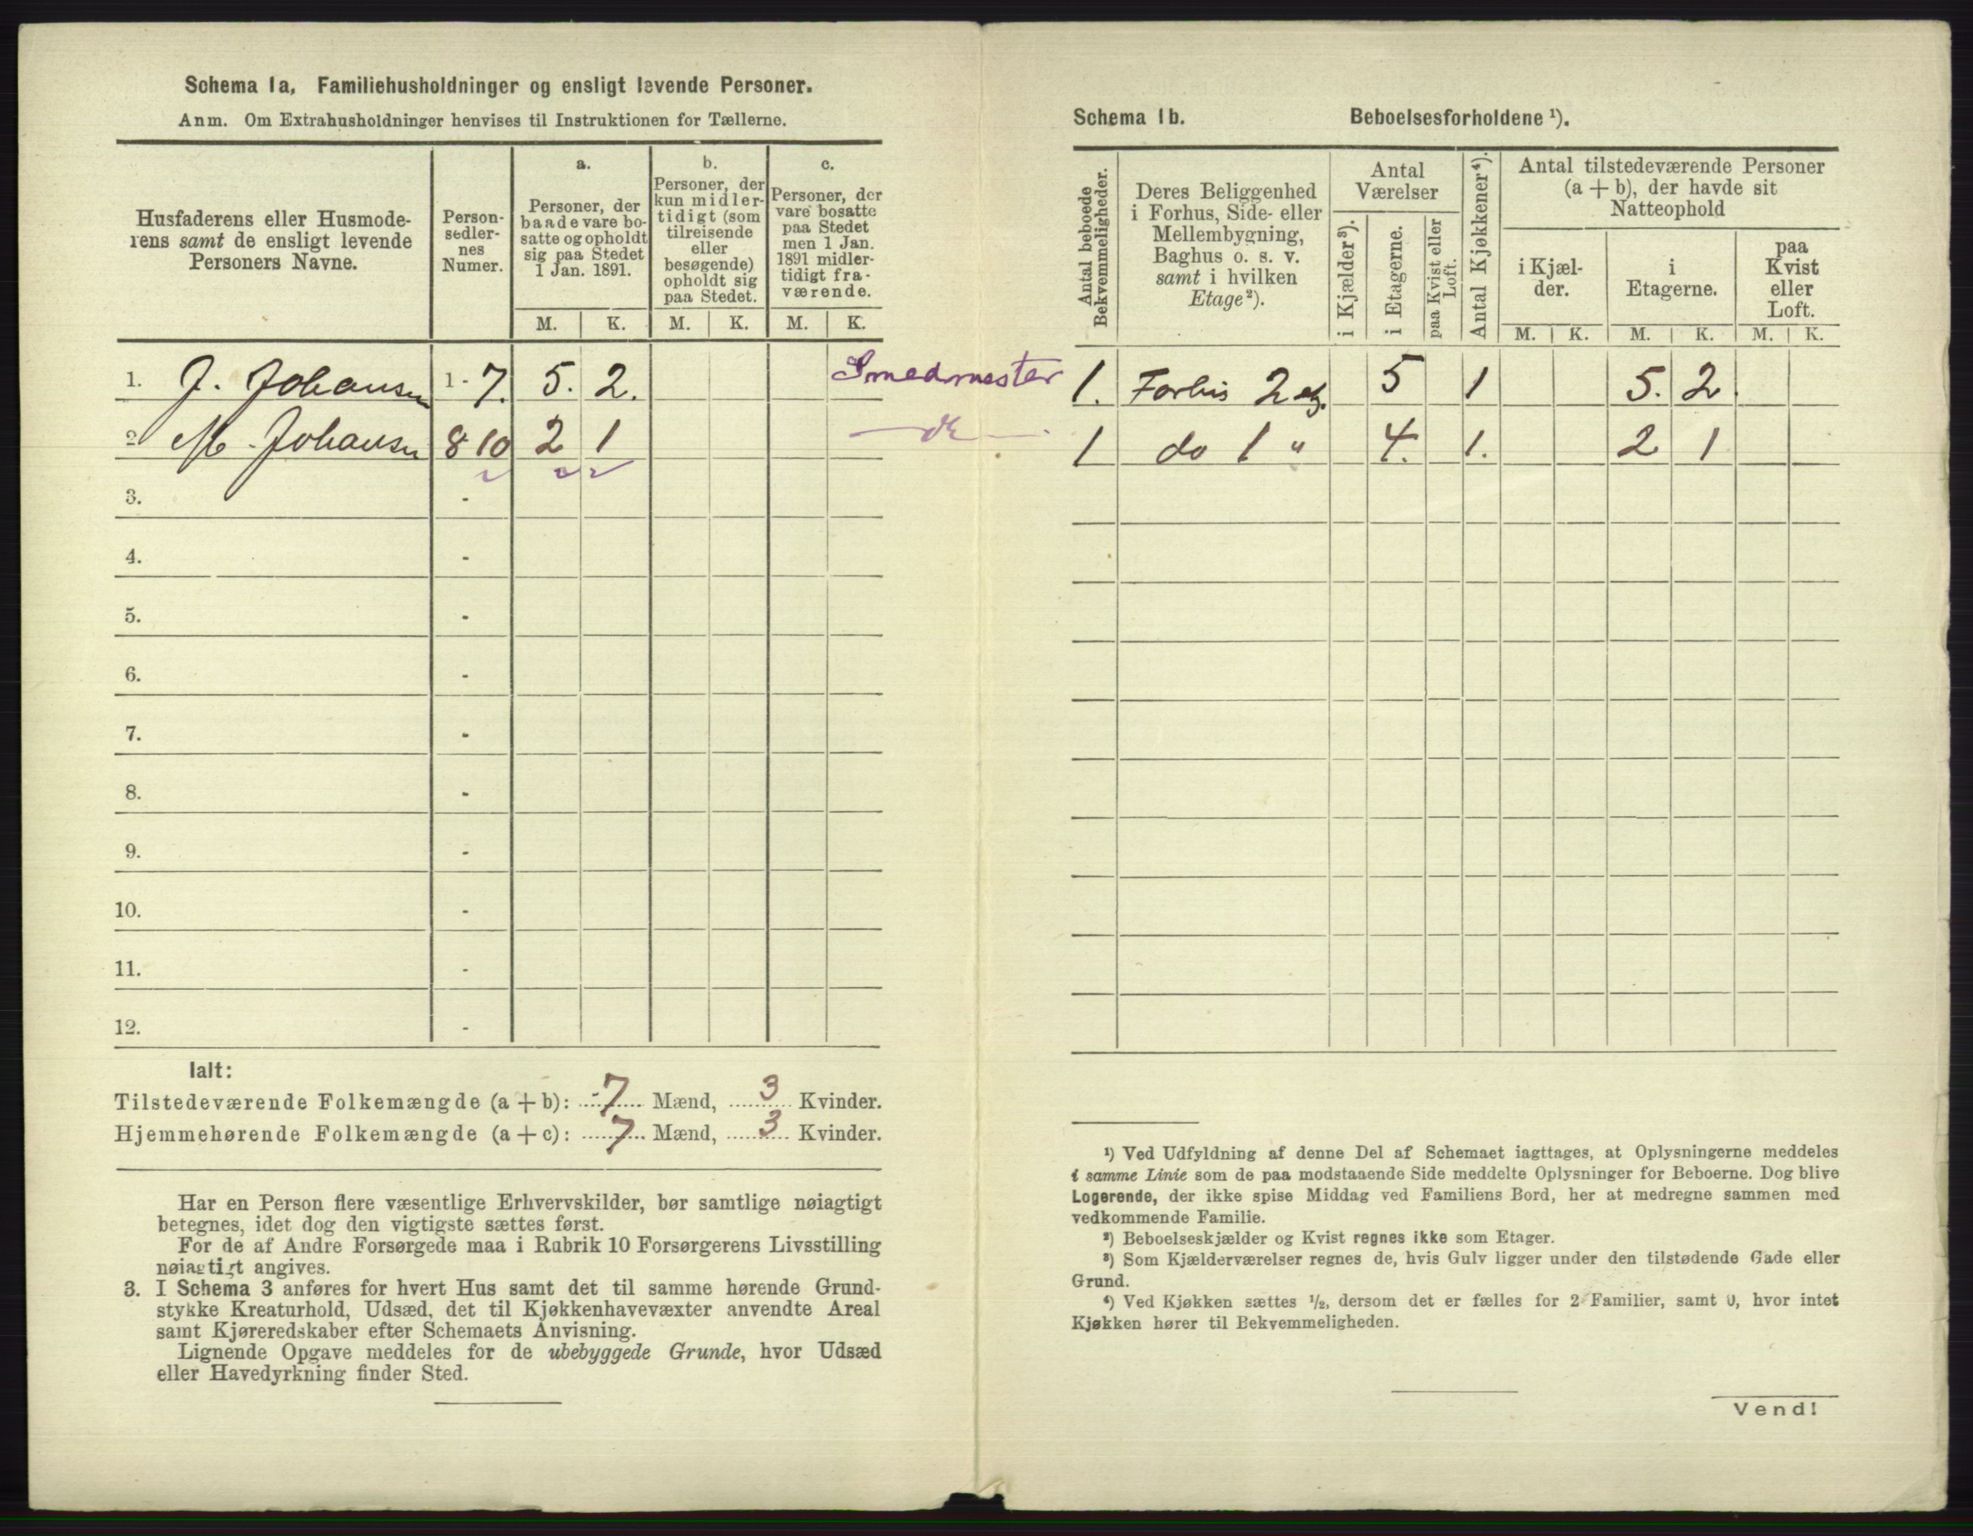 Schema 1a, Familiehusholdninger og ensligt levende Personer.
Anm. Om Extrahusholdninger henvises til Instruktionen for Tællerne.
Husfaderens eller Husmode-
rens samt de ensligt levende
Personers Navne.
Person-
sedler-
nes
Numer.
a.
Personer, der
baade vare bo-
satte og opholdt
sig paa Stedet
1 Jan. 1891.
M. K.
b.
Personer, der
kun midler-
tidigt (som
tilreisende
eller
besøgende)
opholdt sig
paa Stedet.
M. K.
c.
Personer, der
vare bosatte
paa Stedet
men 1 Jan.
1891 midler-
tidigt fra-
værende.
M. K.
1. J. Johansen 1 - 7. 5. 2. Smedmester
2 M. Johansen 8 10 2 1 do
3. -
4. -
5. -
6. -
7. -
8. -
9. -
10. -
11. -
12. -
Ialt:
Tilstedeværende Folkemængde (a + b): 7 Mænd, 3 Kvinder.
Hjemmehørende Folkemængde (a + c): 7 Mænd, 3 Kvinder.
Har en Person flere væsentlige Erhvervskilder, bør samtlige nøiagtigt
betegnes, idet dog den vigtigste sættes først.
For de af Andre Forsørgede maa i Rubrik 10 Forsørgerens Livsstilling
nøiagtigt angives.
3. I Schema 3 anføres for hvert Hus samt det til samme hørende Grund-
stykke Kreaturhold, Udsæd, det til Kjøkkenhavevæxter anvendte Areal
samt Kjøreredskaber efter Schemaets Anvisning.
Lignende Opgave meddeles for de ubebyggede Grunde, hvor Udsæd
eller Havedyrkning finder Sted.
Schema 1b. Beboelsesforholdene ¹).
Antal beboede
Bekvemmeligheder.
Deres Beliggenhed
i Forhus, Side- eller
Mellembygning,
Baghus o. s. v.
samt i hvilken
Etage²).
Antal
Værelser
i Kjælder³).
i Etagerne.
paa Kvist eller
Loft.
Antal Kjøkkener⁴).
Antal tilstedeværende Personer
(a + b), der havde sit
Natteophold
i Kjæl-
der.
i
Etagerne.
paa
Kvist
eller
Loft.
M. K. M. K. M. K.
1. Forhus 2 etg. 5 1 5. 2
1 do 1 " 4. 1. 2 1
¹) Ved Udfyldning af denne Del af Schemaet iagttages, at Oplysningerne meddeles
i samme Linie som de paa modstaaende Side meddelte Oplysninger for Beboerne. Dog blive
Logerende, der ikke spise Middag ved Familiens Bord, her at medregne sammen med
vedkommende Familie.
²) Beboelseskjælder og Kvist regnes ikke som Etager.
³) Som Kjælderværelser regnes de, hvis Gulv ligger under den tilstødende Gade eller
Grund.
⁴) Ved Kjøkken sættes ½, dersom det er fælles for 2 Familier, samt 0, hvor intet
Kjøkken hører til Bekvemmeligheden.
Vend!